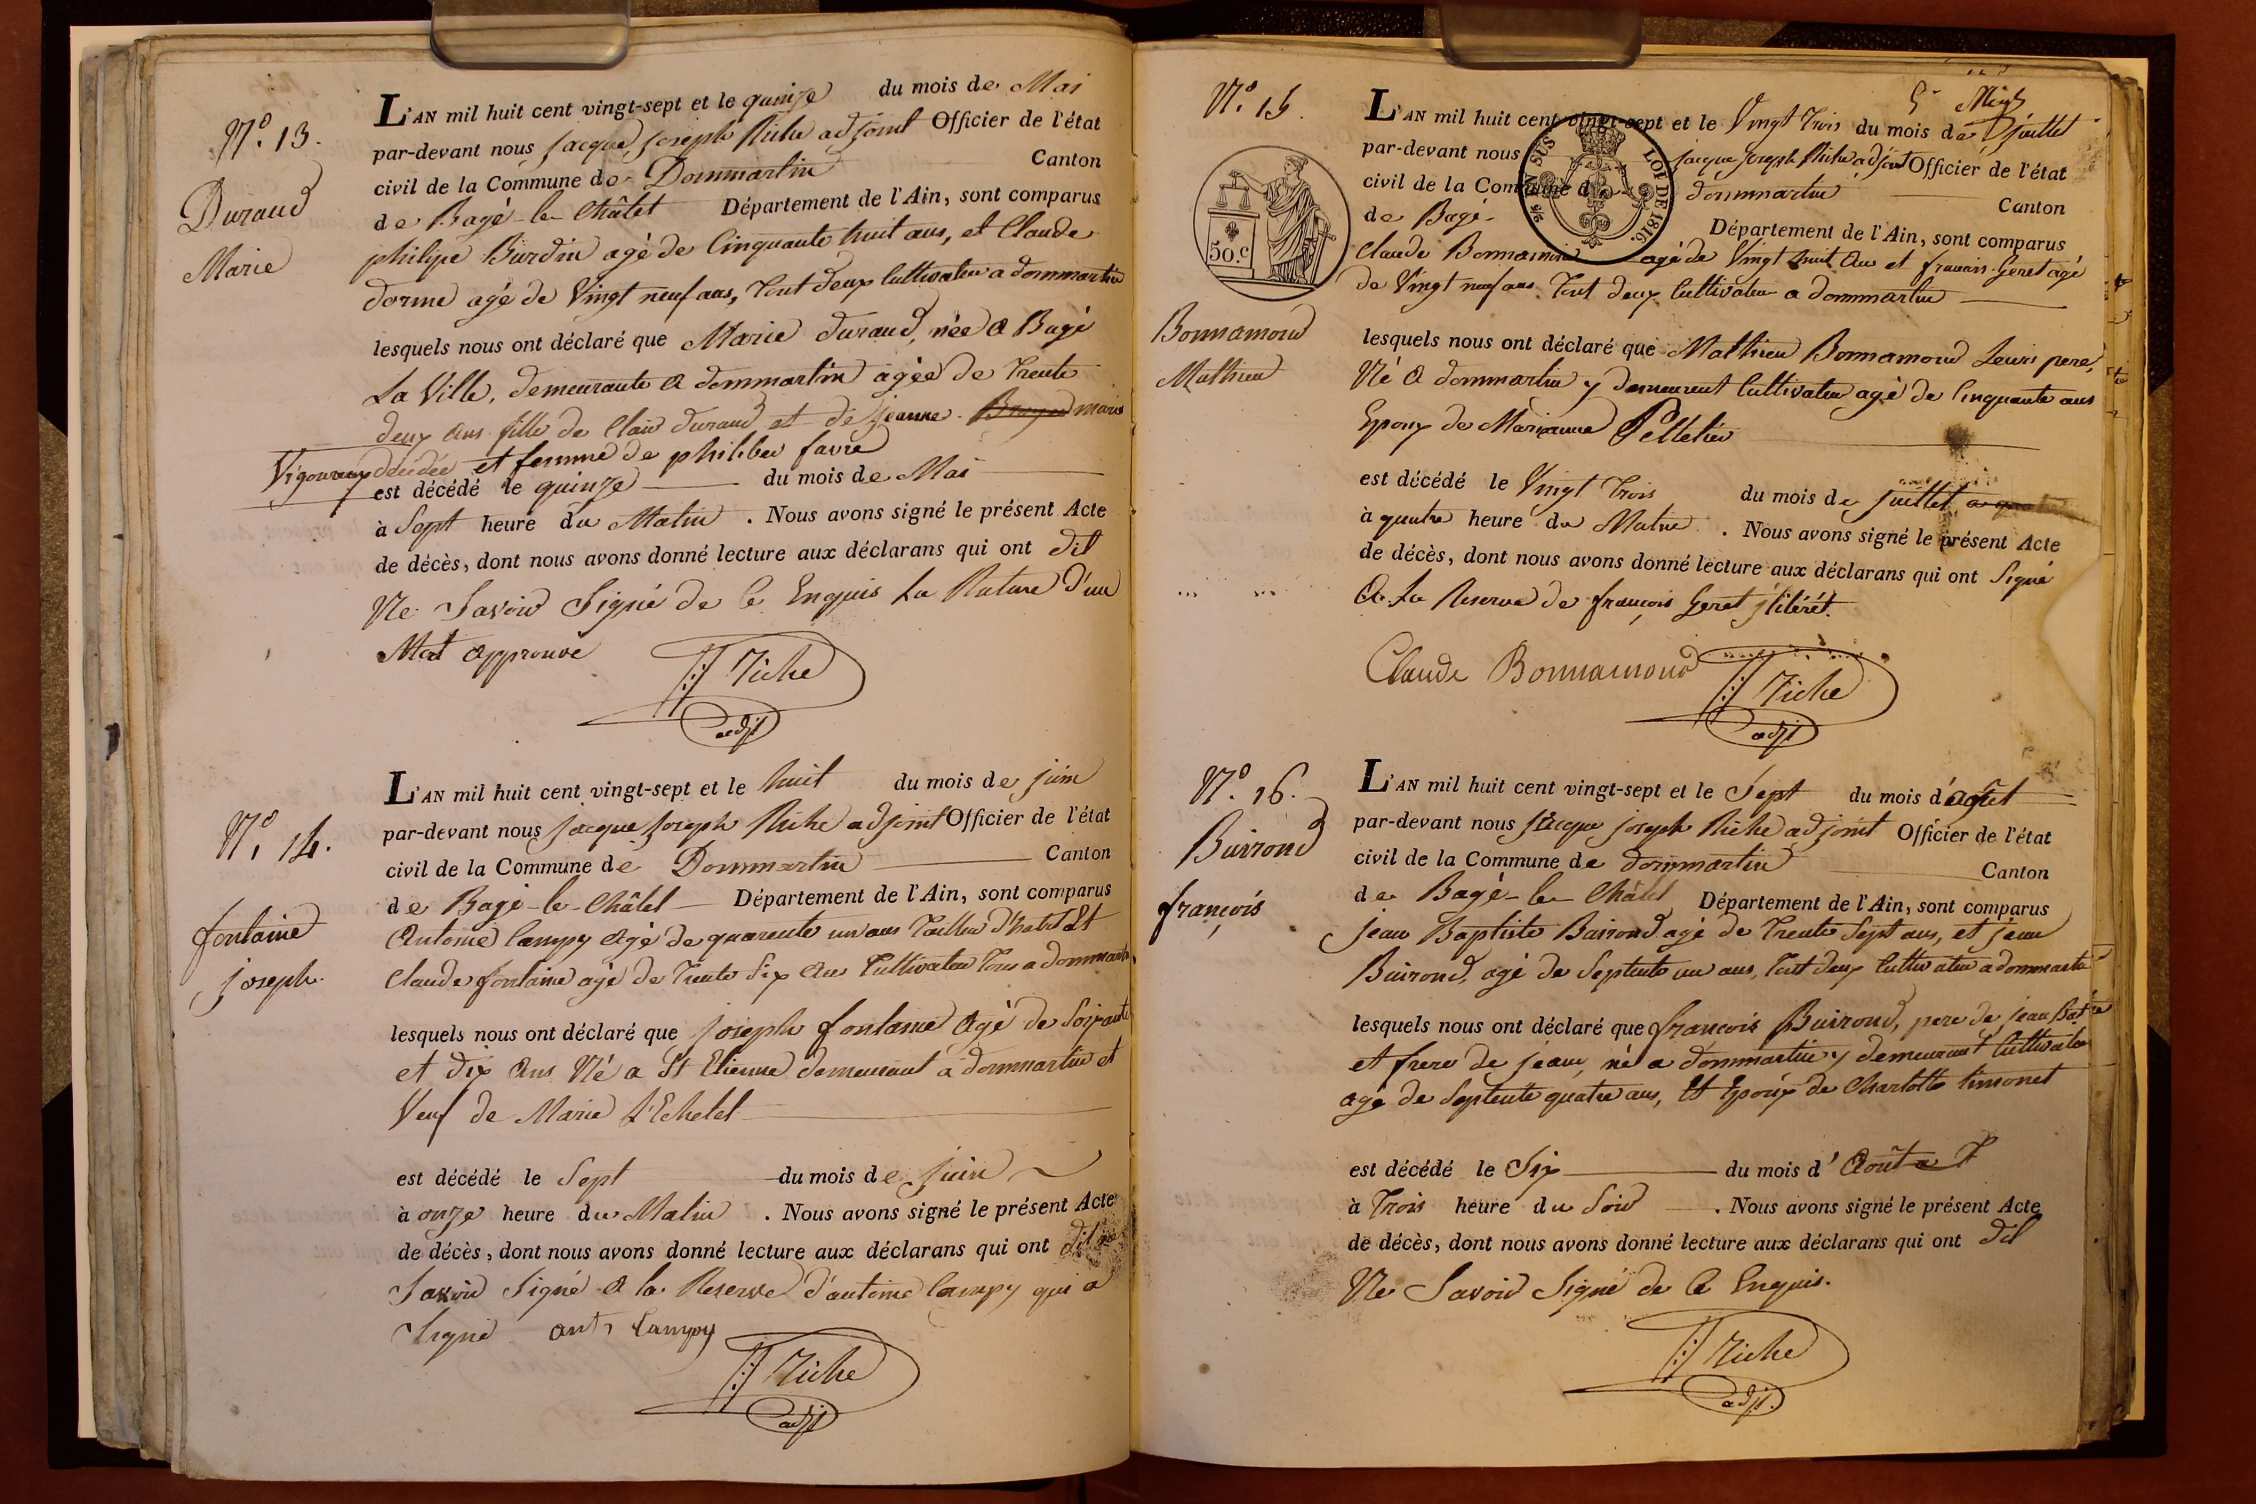 N.° 13.
Durand
Marie
L'AN mil huit cent vingt-sept et le quinze du mois de Mai
par-devant nous jacque joseph Riche adjoint Officier de l'état
civil de la Commune de Dommartin Canton
de Bagé-le-Châtel Département de l'Ain, sont comparus
philipe Burdin agé de Cinquante huit ans, et Claude
dorme agé de Vingt neuf ans, tout deux Cultivateur a dommartin
lesquels nous ont déclaré que Marie durand, née a Bagé
La Ville, demeurante a dommartin agée de trente
deux ans fille de Clau durand et de jeanne maris
Vigoureux décidée et femme de philiber favre
est décédé le quinze du mois de Mai
à Sept heure du Matin. Nous avons signé le présent Acte
de décès, dont nous avons donné lecture aux déclarans qui ont dit
Ne Savoir Signé de Ce Enquis La Rature d'un
Mot approuvé
Riche
adjt
N.° 14.
fontaine
joseph.
L'AN mil huit cent vingt-sept et le huit du mois de juin
par-devant nous jacque joseph Riche adjoint Officier de l'état
civil de la Commune de Dommartin Canton
de Bagé-le-Châtel Département de l'Ain, sont comparus
Antoine Campy agé de quarente un ans Tailleur d'habit Et
Claude fontaine agé de Trente Six ans Cultivateur tous a dommartin
lesquels nous ont déclaré que joseph fontaine Agé de Soixante
et dix ans Né a St Etienne demeurant a dommartin et
Veuf de Marie L'Echelet
est décédé le Sept du mois de juin
à onze heure du Matin. Nous avons signé le présent Acte
de décès, dont nous avons donné lecture aux déclarans qui ont dit ne
Savoir Signé a la Reserve d'antoine Campy qui a
Signé ant. Campy
Riche
adjt
5.e
N.° 15.
50.c
LOI DE 1816.
Bonnamour
Mathieu
L'AN mil huit cent vingt-sept et le Vingt trois du mois de juillet
par-devant nous jacque joseph Riche adjoint Officier de l'état
civil de la Commune de dommartin Canton
de Bagé Département de l'Ain, sont comparus
Claude Bonnamour agé de Vingt huit ans et francois Geret agé
de Vingt neuf ans tout deux Cultivateur a dommartin
lesquels nous ont déclaré que Mathieu Bonnamour Leurs pere,
Né a dommartin y demeurent Cultivateur agé de Cinquante ans
Epoux de Marianne Pelletier
est décédé le Vingt trois du mois de juillet
à quatre heure du Matin. Nous avons signé le présent Acte
de décès, dont nous avons donné lecture aux déclarans qui ont Signé
a La Reserve de françois Geret j'litérét.
Claude Bonnamour
Riche
adjt
N.° 16.
Buirond
françois
L'AN mil huit cent vingt-sept et le Sept du mois d'août
par-devant nous jacque joseph Riche adjoint Officier de l'état
civil de la Commune de dommartin Canton
de Bagé-le-Châtel Département de l'Ain, sont comparus
jean Baptiste Buirond agé de trente Sept ans, et jean
Buirond, agé de Septente un ans, tout deux Cultivateur a dommartin
lesquels nous ont déclaré que françois Buirond, pere de jean Bat.te
et frere de jean, né a dommartin y demeurant Cultivateur
agé de Septente quatre ans, Et Epoux de Charlotte limonet
est décédé le Six du mois d'Août
à trois heure du Soir. Nous avons signé le présent Acte
de décès, dont nous avons donné lecture aux déclarans qui ont dit
Ne Savoir Signé de Ce Enquis.
Riche
adjt.